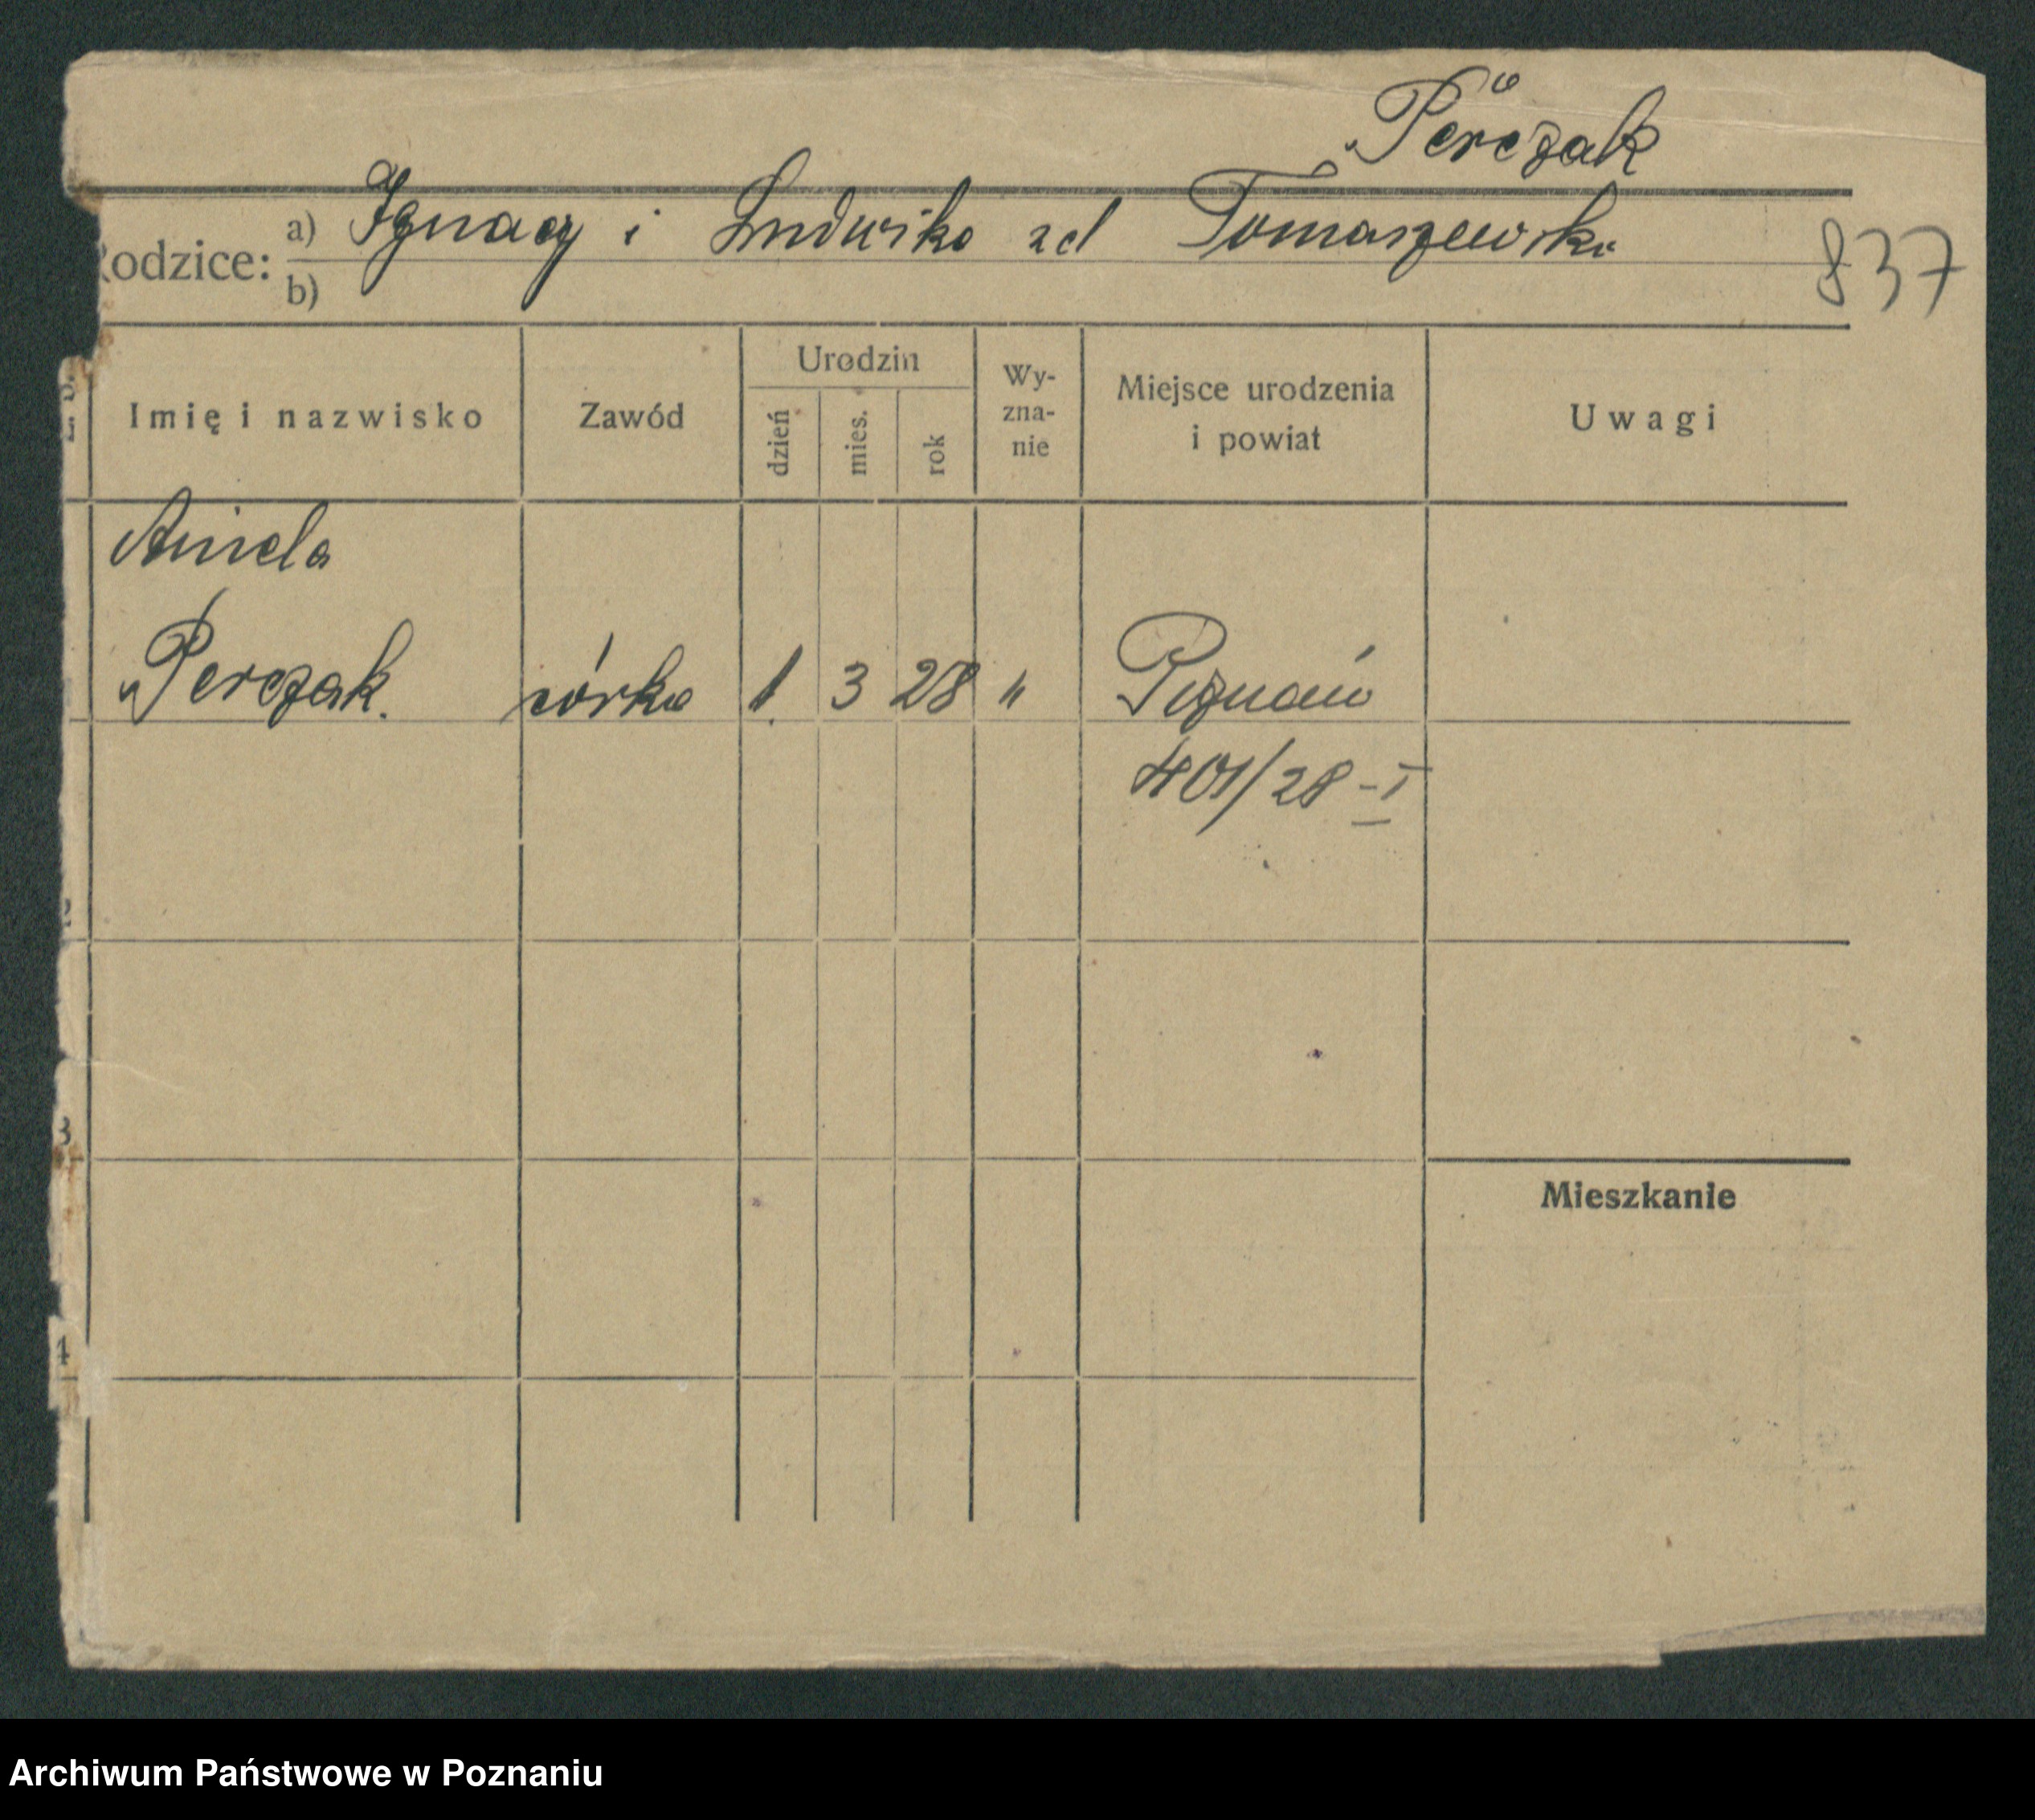 Perczak
Rodzice: a) Ignacy i Ludwika zd Tomaszewska
b)
837
Imię i nazwisko
Zawód
Urodzin
dzień
mies.
rok
Wy-
zna-
nie
Miejsce urodzenia
i powiat
Uwagi
Aniela
Perczak. córka 1. 3 28 " Poznań
401/28 - I
2
3
Mieszkanie
4
Archiwum Państwowe w Poznaniu